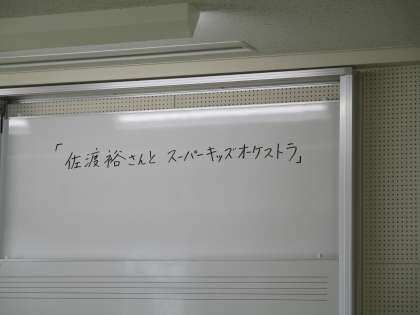 「佐渡裕さんと スーパーキッズオーケストラ」